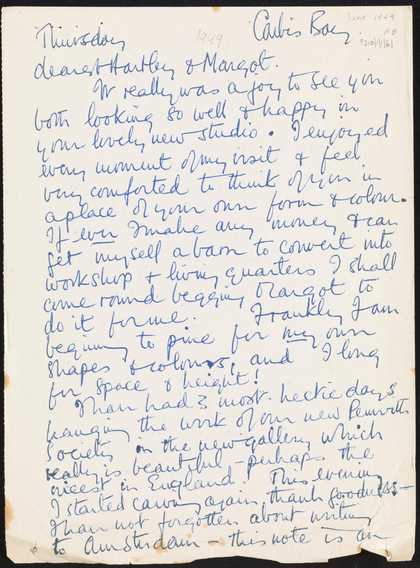 Thursday 1949 Carbis Bay. June 1949
dearest Hartley & Margot.
It really was a joy to see you
both looking so well & happy in
your lovely new studio. I enjoyed
every moment of my visit & feel
very comforted to think of you in
a place of your own form & colour.
If ever I make any money & can
get myself a barn to convert into
workshop & living quarters I shall
come round begging Margot to
do it for me. Frankly I am
beginning to pine for my own
shapes & colours, and I long
for space & height!
I have had 3 most hectic days
hanging the work of our new Penwith
Society in the new gallery which
really is beautiful - perhaps the
nicest in England! This evening
I started carving again, thank goodness -
I have not forgotten about writing
to Amsterdam - this note is an